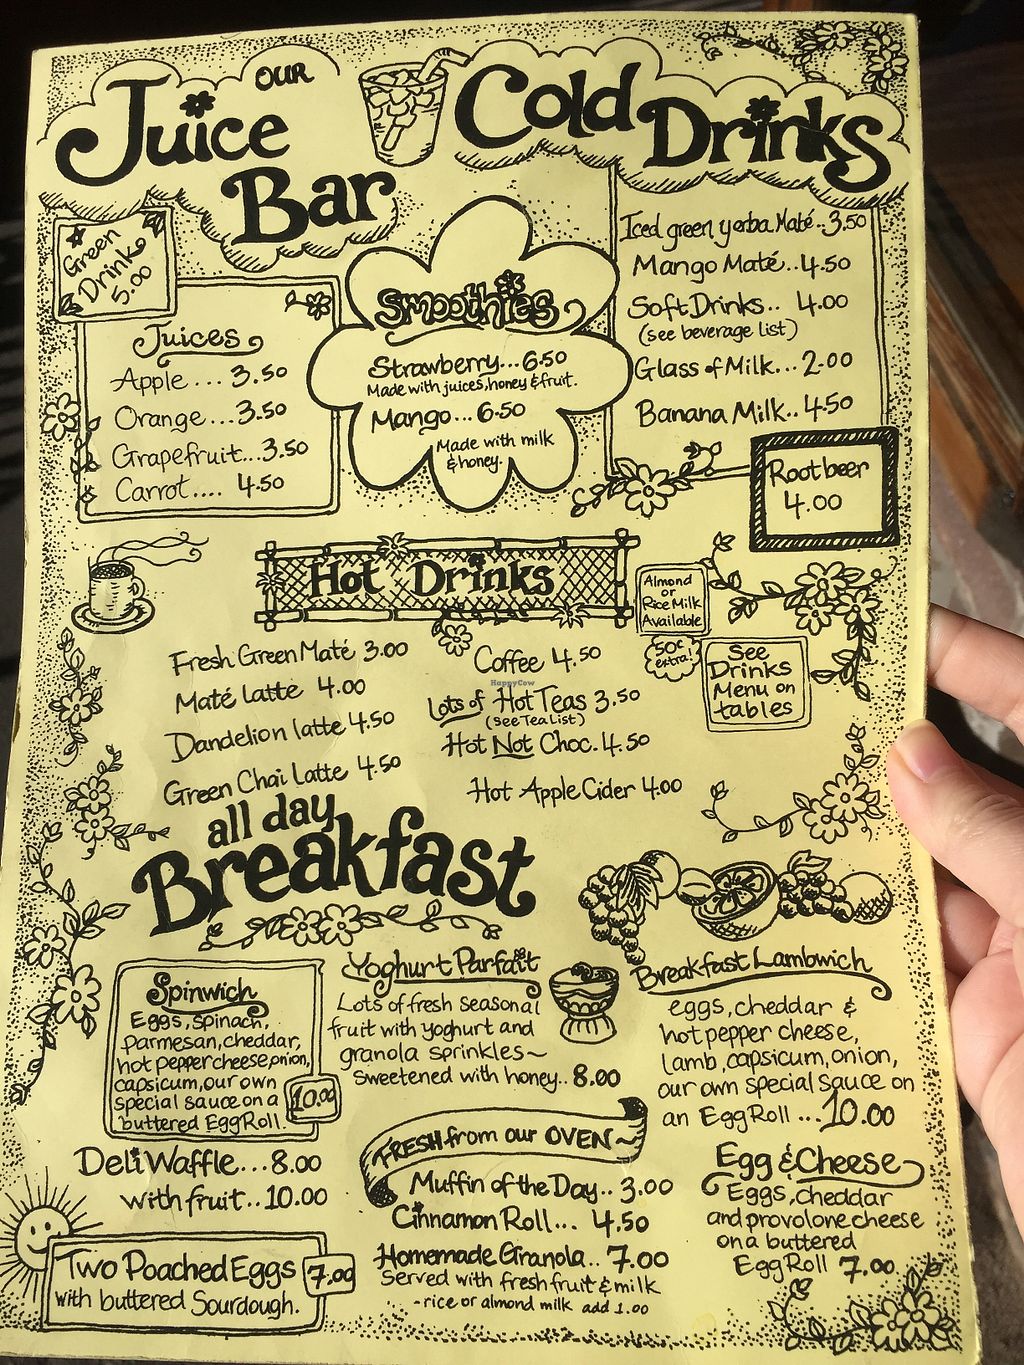 OUR
Juice
Bar
Cold
Drinks
Green
Drink
5.00
Juices
Apple.... 3.50
Orange...3.50
Grapefruit...3.50
Carrot.... 4.50
Smoothies
Strawberry...6.50
Made with juices, honey & fruit.
Mango...6.50
Made with milk
& honey.
Iced green yerba Maté..3.50
Mango Maté..4.50
Soft Drinks.. 4.00
(see beverage list)
Glass of Milk...2.00
Banana Milk..4.50
Rootbeer
4.00
Hot Drinks
Almond
or
Rice Milk
Available
50¢
extra!
See
Drinks
Menu on
tables
Fresh Green Maté 3.00
Maté latte 4.00
Dandelion latte 4.50
Green Chai Latte 4.50
Coffee 4.50
Lots of Hot Teas 3.50
(see Tea List)
Hot Not Choc. 4.50
Hot Apple Cider 4.00
HappyCow
all day
Breakfast
Spinwich
Eggs, spinach,
parmesan, cheddar,
hot pepper cheese, onion,
capsicum, our own
special sauce on a
buttered Egg Roll.
10.00
Deli Waffle...8.00
with fruit..10.00
Two Poached Eggs
with buttered Sourdough.
7.00
Yoghurt Parfait
Lots of fresh seasonal
fruit with yoghurt and
granola sprinkles~
sweetened with honey..8.00
FRESH from our OVEN~
Muffin of the Day.. 3.00
Cinnamon Roll... 4.50
Homemade Granola.. 7.00
Served with fresh fruit & milk
-rice or almond milk add 1.00
Breakfast Lambwich
eggs, cheddar &
hot pepper cheese,
lamb, capsicum, onion,
our own special sauce on
an Egg Roll ...10.00
Egg & Cheese
Eggs, cheddar
and provolone cheese
on a buttered
Egg Roll 7.00